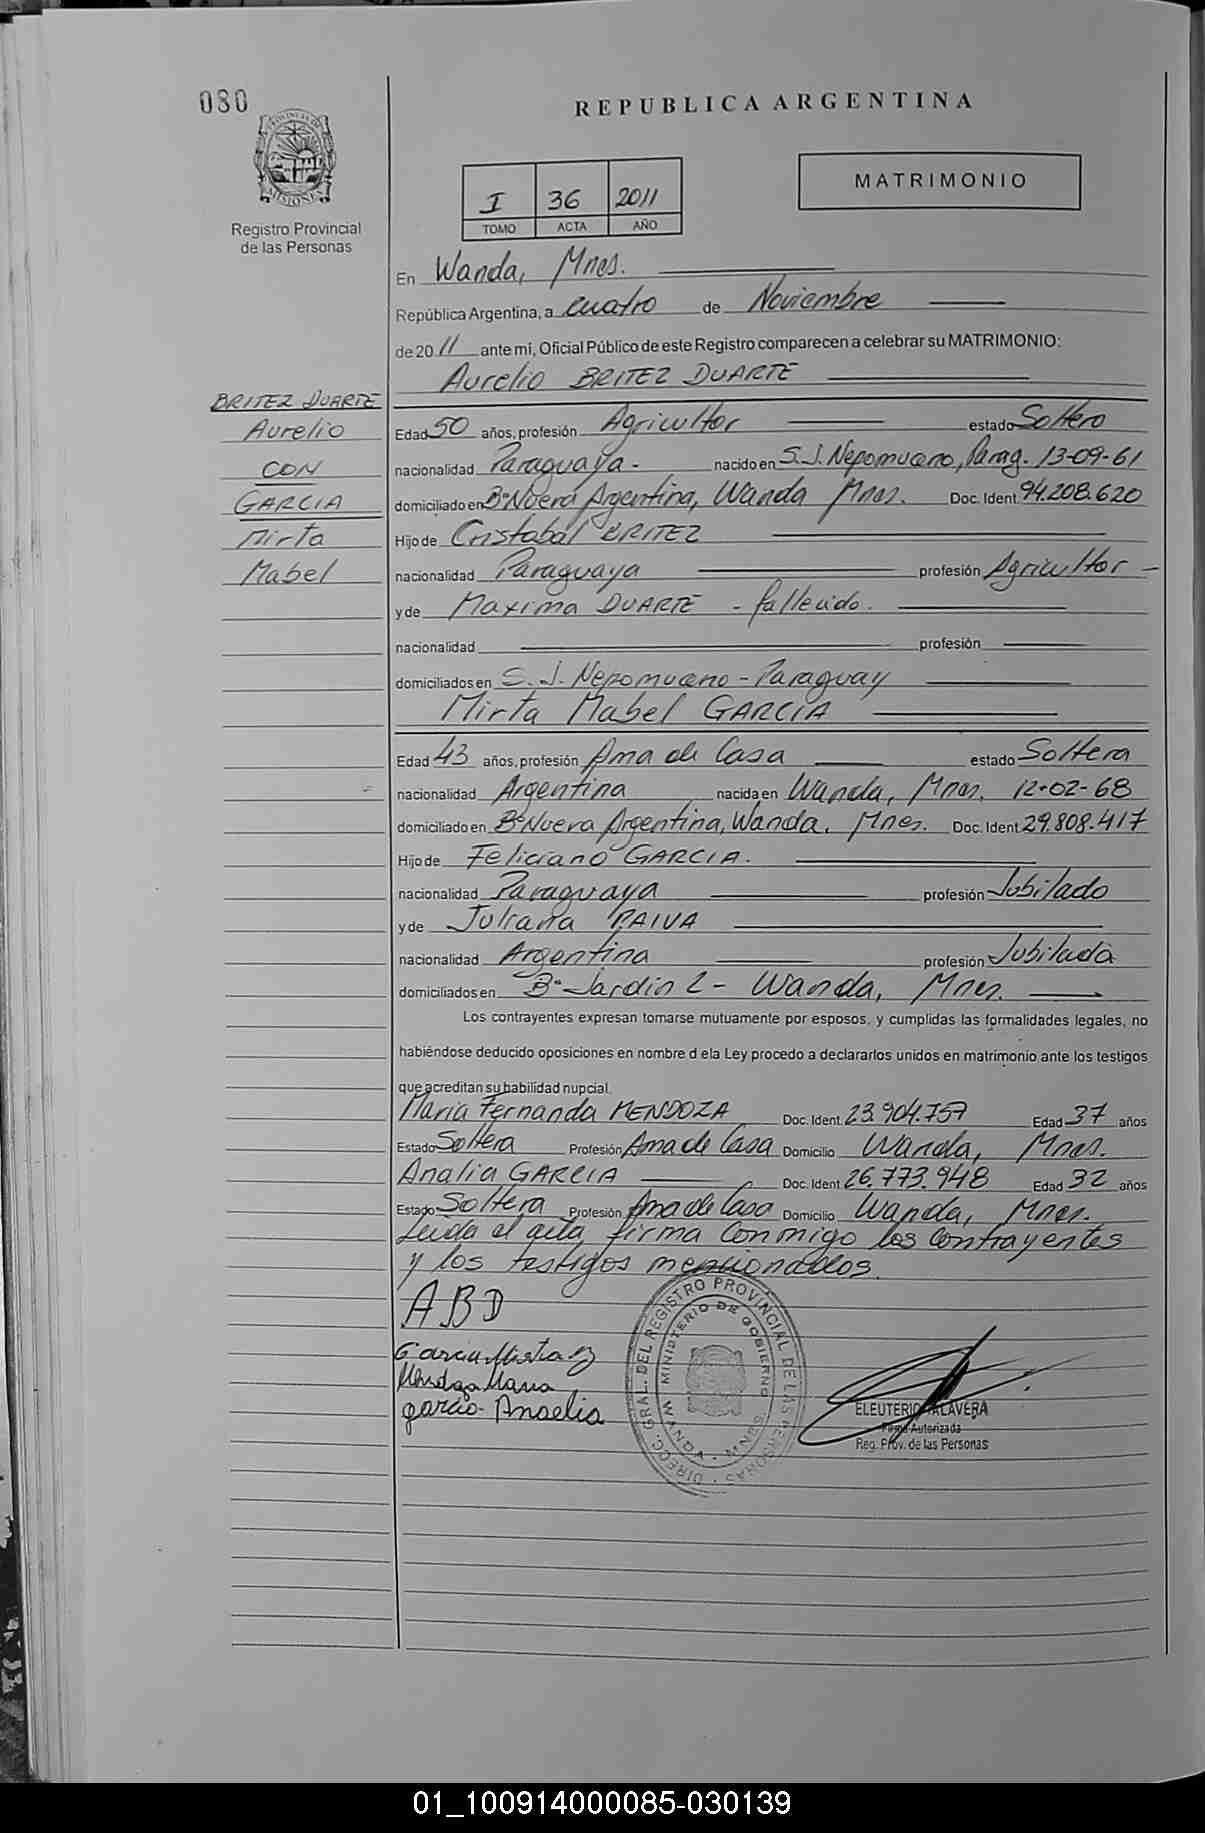 080
REPUBLICA ARGENTINA
PROVINCIA DE MISIONES
Registro Provincial
de las Personas
I 36 2011
TOMO ACTA AÑO
MATRIMONIO
En Wanda, Mnes.
República Argentina, a cuatro de Noviembre
de 20 11 ante mi, Oficial Público de este Registro comparecen a celebrar su MATRIMONIO:
Aurelio BRITEZ DUARTE
BRITEZ DUARTE
Aurelio
CON
GARCIA
Mirta
Mabel
Edad 50 años, profesión Agricultor estado Soltero
nacionalidad Paraguaya. nacido en S.J. Nepomuceno, Parag. 13-09-61
domiciliado en Bº Nueva Argentina, Wanda Mnes. Doc. Ident. 94.208.620
Hijo de Cristobal BRITEZ
nacionalidad Paraguaya profesión Agricultor
y de Maxima DUARTE - fallecido.
nacionalidad profesión
domiciliados en S. J. Nepomuceno - Paraguay
Mirta Mabel GARCIA
Edad 43 años, profesión Ama de Casa estado Soltera
nacionalidad Argentina nacida en Wanda, Mnes. 12-02-68
domiciliado en Bº Nueva Argentina, Wanda. Mnes. Doc. Ident 29.808.417
Hijo de Feliciano GARCIA.
nacionalidad Paraguaya profesión Jubilado
y de Juliana PAIVA
nacionalidad Argentina profesión Jubilada
domiciliados en Bº Jardin 2 - Wanda, Mnes.
Los contrayentes expresan tomarse mutuamente por esposos, y cumplidas las formalidades legales, no
habiéndose deducido oposiciones en nombre d ela Ley procedo a declararlos unidos en matrimonio ante los testigos
que acreditan su habilidad nupcial.
Maria Fernanda MENDOZA Doc. Ident. 23.904.757 Edad 37 años
Estado Soltera Profesión Ama de Casa Domicilio Wanda, Mnes.
Analia GARCIA Doc. Ident 26.773.948 Edad 32 años
Estado Soltera Profesión Ama de Casa Domicilio Wanda, Mnes.
Leida el acta, firma conmigo los contrayentes
y los testigos mencionados.
ABD
Garcia Mirta
Mendoza Maria
garcia Analia
DIRECC. GRAL. DEL REGISTRO PROVINCIAL DE LAS PERSONAS
MINISTERIO DE GOBIERNO
WANDA - MNES
ELEUTERIO TALAVERA
Firma Autorizada
Reg. Prov. de las Personas
01_100914000085-030139